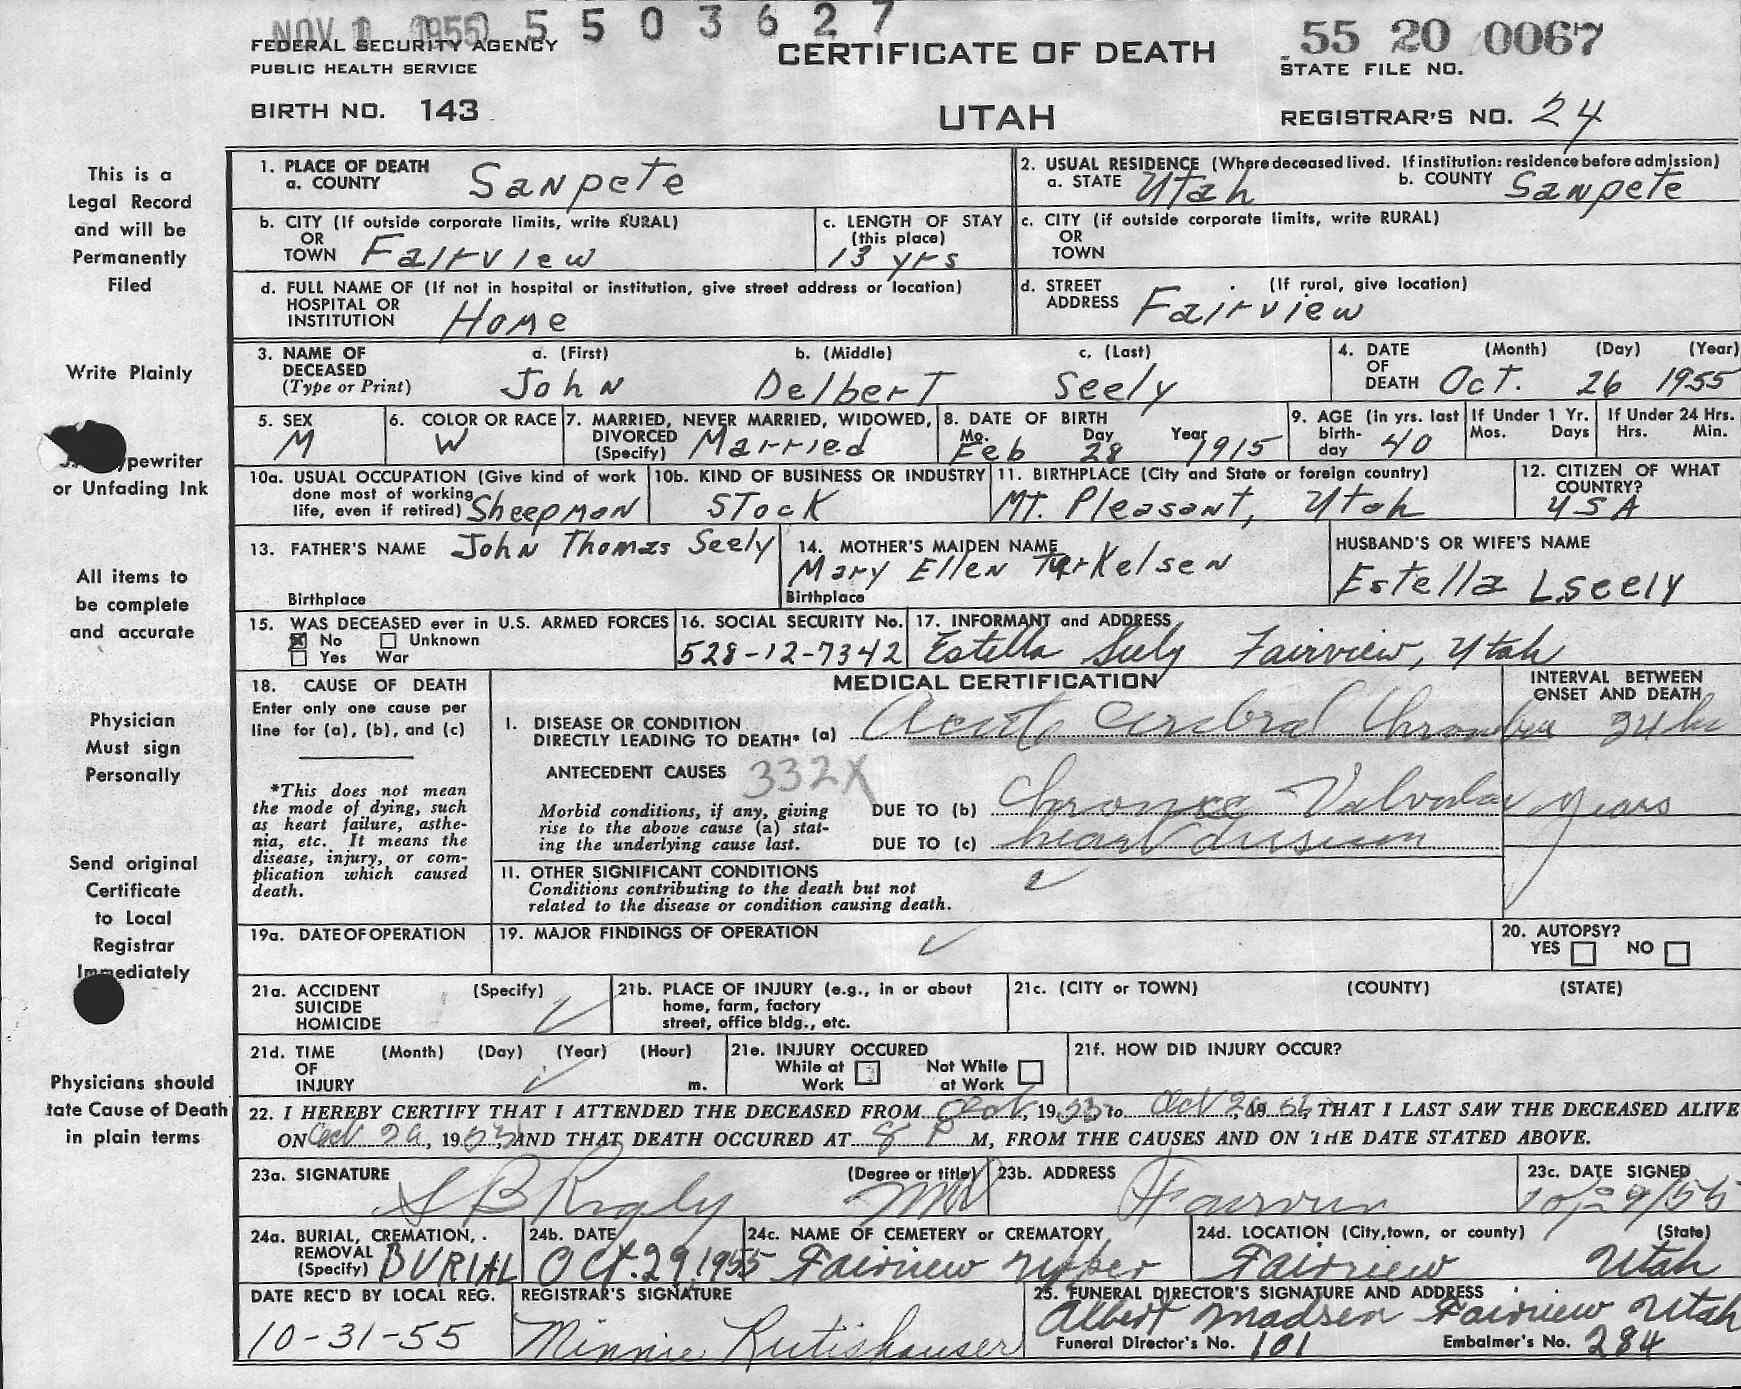 NOV 1 1955 5 5 0 3 6 2 7
55 20 0067
FEDERAL SECURITY AGENCY
PUBLIC HEALTH SERVICE
CERTIFICATE OF DEATH
STATE FILE NO.
BIRTH NO. 143
UTAH
REGISTRAR'S NO. 24
This is a
Legal Record
and will be
Permanently
Filed
Write Plainly
ypewriter
or Unfading Ink
All items to
be complete
and accurate
Physician
Must sign
Personally
Send original
Certificate
to Local
Registrar
Immediately
Physicians should
tate Cause of Death
in plain terms
1. PLACE OF DEATH
a. COUNTY Sanpete
2. USUAL RESIDENCE (Where deceased lived. If institution: residence before admission)
a. STATE Utah b. COUNTY Sanpete
b. CITY (If outside corporate limits, write RURAL)
OR
TOWN Fairview
c. LENGTH OF STAY
(this place)
13 yrs
c. CITY (if outside corporate limits, write RURAL)
OR
TOWN
d. FULL NAME OF (If not in hospital or institution, give street address or location)
HOSPITAL OR
INSTITUTION Home
d. STREET (If rural, give location)
ADDRESS Fairview
3. NAME OF DECEASED
(Type or Print)
a. (First) b. (Middle) c. (Last)
John Delbert Seely
4. DATE OF DEATH (Month) (Day) (Year)
Oct. 26 1955
5. SEX
M
6. COLOR OR RACE
W
7. MARRIED, NEVER MARRIED, WIDOWED,
DIVORCED
(Specify) Married
8. DATE OF BIRTH
Mo. Day Year
Feb 28 1915
9. AGE (in yrs. last
birth-
day 40
If Under 1 Yr.
Mos. Days
If Under 24 Hrs.
Hrs. Min.
10a. USUAL OCCUPATION (Give kind of work
done most of working
life, even if retired) Sheepman
10b. KIND OF BUSINESS OR INDUSTRY
Stock
11. BIRTHPLACE (City and State or foreign country)
Mt. Pleasant, Utah
12. CITIZEN OF WHAT
COUNTRY?
USA
13. FATHER'S NAME John Thomas Seely
Birthplace
14. MOTHER'S MAIDEN NAME
Mary Ellen Turkelsen
Birthplace
HUSBAND'S OR WIFE'S NAME
Estella L Seely
15. WAS DECEASED ever in U.S. ARMED FORCES
No Unknown
Yes War
16. SOCIAL SECURITY No.
528-12-7342
17. INFORMANT and ADDRESS
Estella Seely Fairview, Utah
18. CAUSE OF DEATH
Enter only one cause per
line for (a), (b), and (c)
*This does not mean
the mode of dying, such
as heart failure, asthe-
nia, etc. It means the
disease, injury, or com-
plication which caused
death.
MEDICAL CERTIFICATION
INTERVAL BETWEEN
ONSET AND DEATH
I. DISEASE OR CONDITION
DIRECTLY LEADING TO DEATH* (a) Acute Cerebral
ANTECEDENT CAUSES 332X
Morbid conditions, if any, giving
rise to the above cause (a) stat-
ing the underlying cause last.
DUE TO (b) Chronic Valvular years
DUE TO (c) heart
11. OTHER SIGNIFICANT CONDITIONS
Conditions contributing to the death but not
related to the disease or condition causing death.
19a. DATE OF OPERATION
19. MAJOR FINDINGS OF OPERATION
20. AUTOPSY?
YES NO
21a. ACCIDENT (Specify)
SUICIDE
HOMICIDE
21b. PLACE OF INJURY (e.g., in or about
home, farm, factory
street, office bldg., etc.
21c. (CITY or TOWN) (COUNTY) (STATE)
21d. TIME (Month) (Day) (Year) (Hour)
OF
INJURY m.
21e. INJURY OCCURED
While at Work Not While at Work
21f. HOW DID INJURY OCCUR?
22. I HEREBY CERTIFY THAT I ATTENDED THE DECEASED FROM , 19 to Oct 26, 1955, THAT I LAST SAW THE DECEASED ALIVE
ON Oct 26, 1955, AND THAT DEATH OCCURED AT 8 P M, FROM THE CAUSES AND ON THE DATE STATED ABOVE.
23a. SIGNATURE (Degree or title)
S B Rigby MD
23b. ADDRESS
Fairview
23c. DATE SIGNED
10/29/55
24a. BURIAL, CREMATION,
REMOVAL
(Specify) BURIAL
24b. DATE
Oct. 29, 1955
24c. NAME OF CEMETERY or CREMATORY
Fairview Upper
24d. LOCATION (City, town, or county) (State)
Fairview Utah
DATE REC'D BY LOCAL REG.
10-31-55
REGISTRAR'S SIGNATURE
Minnie Rutishauser
25. FUNERAL DIRECTOR'S SIGNATURE AND ADDRESS
Albert Madsen Fairview Utah
Funeral Director's No. 101 Embalmer's No. 284